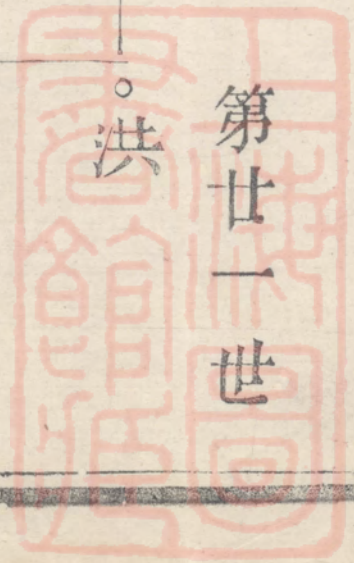 第廿一世
。洪
上海圖書館藏